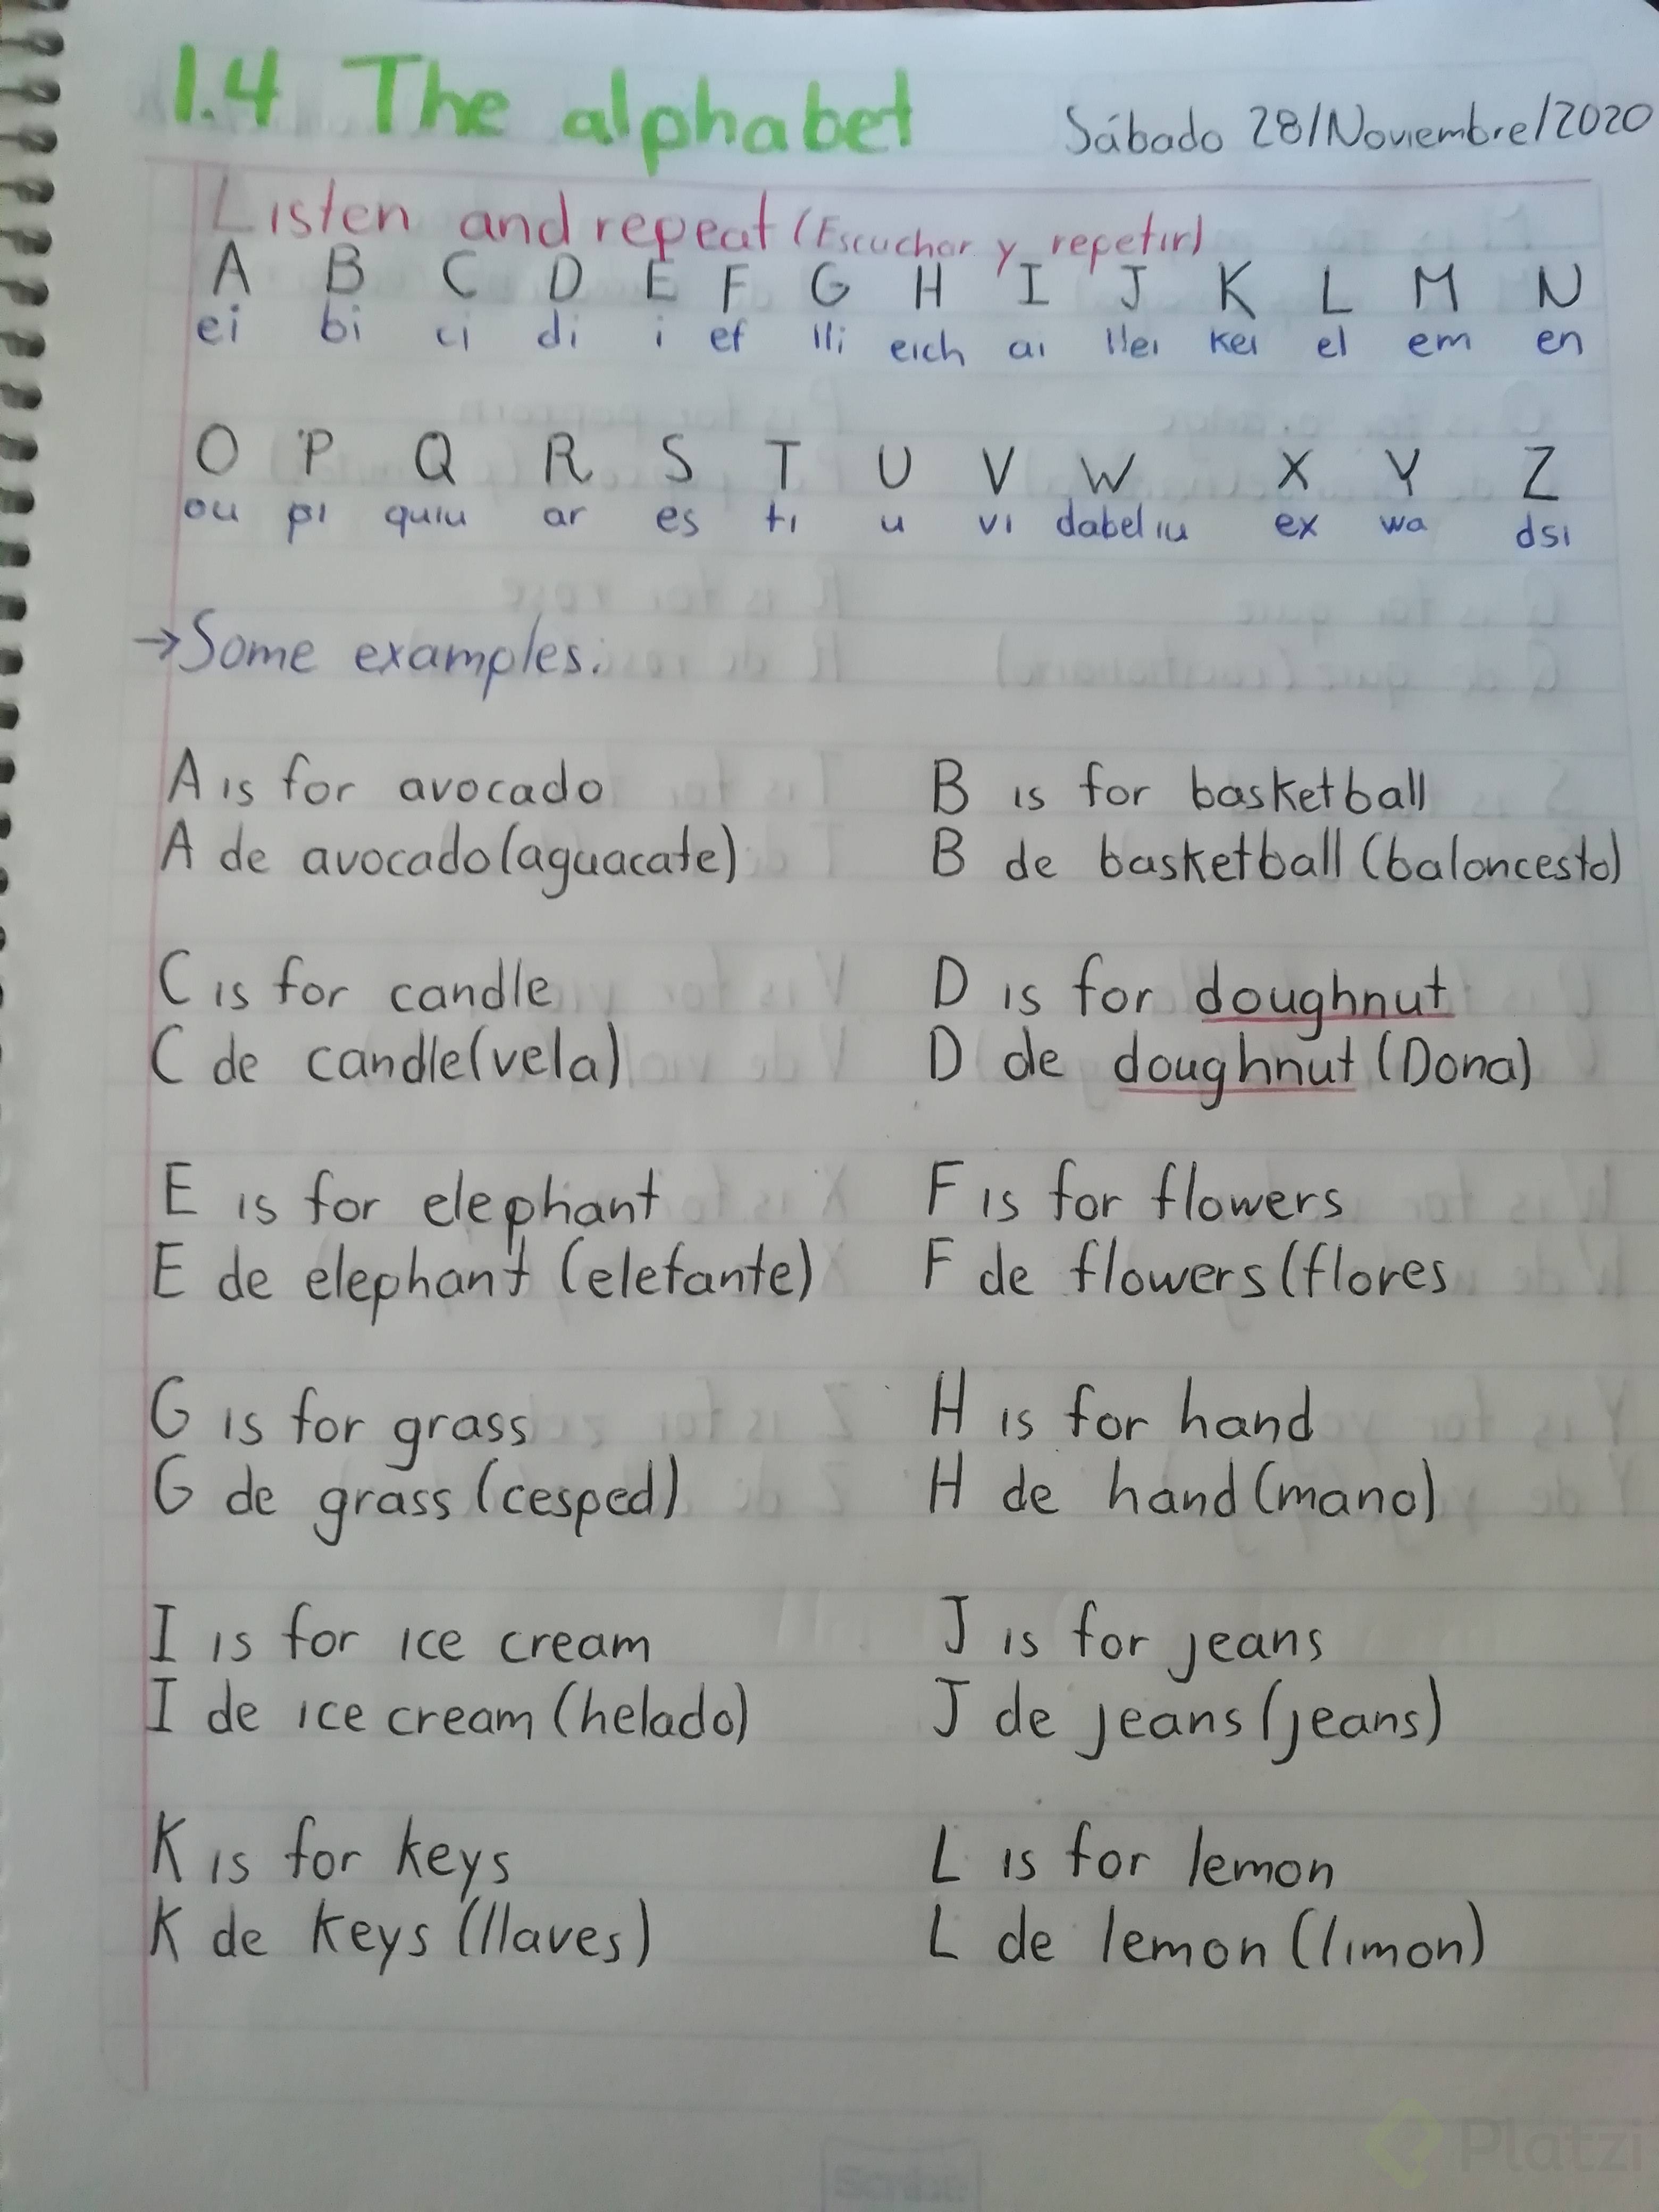 1.4 The alphabet
Sábado 28/Noviembre/2020
Listen and repeat (Escuchar y repetir)
A B C D E F G H I J K L M N
ei bi ci di i ef lli eich ai llei kei el em en
O P Q R S T U V W X Y Z
ou pi quiu ar es ti u vi dabeliu ex wa dsi
→ Some examples:
A is for avocado B is for basketball
A de avocado (aguacate) B de basketball (baloncesto)
C is for candle D is for doughnut
C de candle (vela) D de doughnut (Dona)
E is for elephant F is for flowers
E de elephant (elefante) F de flowers (flores
G is for grass H is for hand
G de grass (cesped) H de hand (mano)
I is for ice cream J is for jeans
I de ice cream (helado) J de jeans (jeans)
K is for keys L is for lemon
K de keys (llaves) L de lemon (limon)
Platzi
Scribe